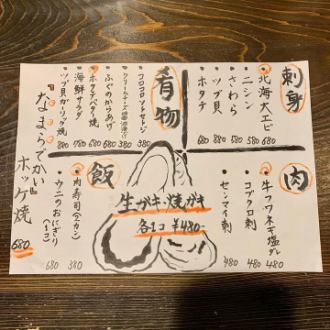 刺身
・北海大エビ 780
・ニシン 580
・さわら 680
・ツブ貝 680
・ホタテ 680
肴物
・コロコロソセトジ
・ふぐのからあげ
・ホタテバター焼 680
・海鮮サラダ 780
・ツブ貝ガーリック焼 780
『なまらでかい』
ホッケ焼 680
肉
・牛フワネギ塩ダレ 480
・コブクロ刺 480
・センマイ刺 480
飯
・肉寿司(2カン) 380
・ウニのおにぎり(1コ) 680
生ガキ・焼ガキ
各1コ ¥480-